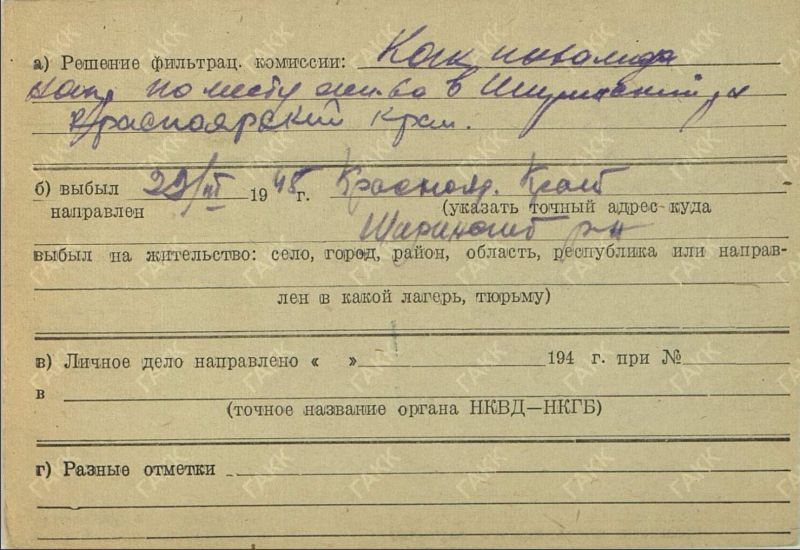 а) Решение фильтрац. комиссии: Как инвалида
по месту жит-ва в Ширинский р-н
Красноярский край.
б) выбыл 22/VI 1945 г. Краснояр. Край
направлен (указать точный адрес-куда
Ширинский р-н
выбыл на жительство: село, город, район, область, республика или направ-
лен в какой лагерь, тюрьму)
в) Личное дело направлено « » 194 г. при №
в
(точное название органа НКВД—НКГБ)
г) Разные отметки
ГАКК